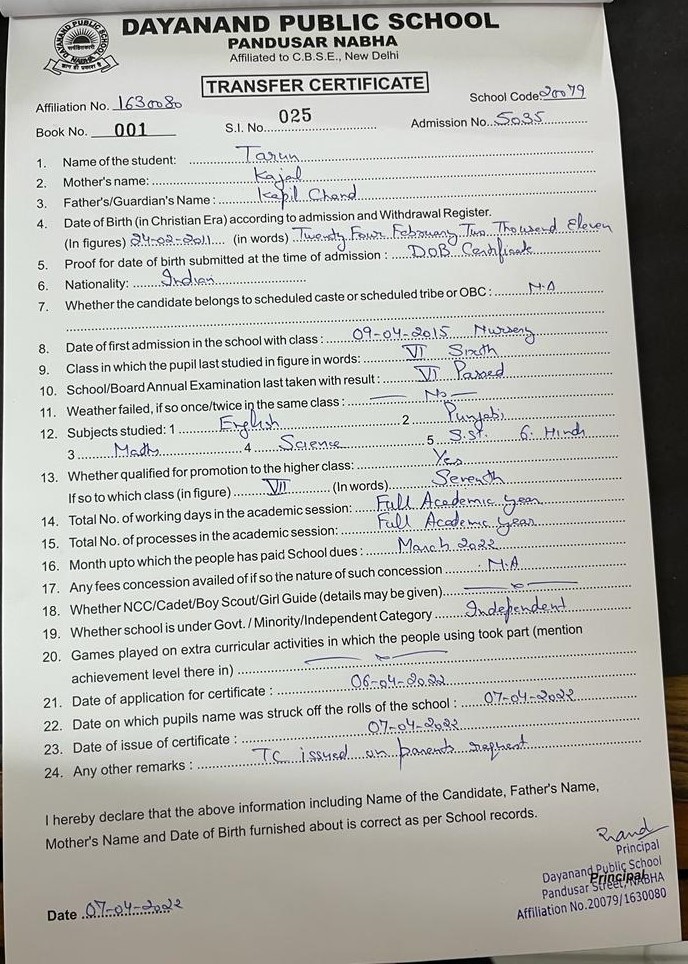 DAYANAND PUBLIC SCHOOL
PANDUSAR NABHA
Affiliated to C.B.S.E., New Delhi
TRANSFER CERTIFICATE
Affiliation No. 1630080 School Code 20079
Book No. 001 S.I. No. 025 Admission No. 5035
1. Name of the student: Tarun
2. Mother's name: Kajal
3. Father's/Guardian's Name : Kapil Chand
4. Date of Birth (in Christian Era) according to admission and Withdrawal Register.
(In figures) 24-02-2011 (in words) Twenty Four February Two Thousand Eleven
5. Proof for date of birth submitted at the time of admission : DOB Certificate
6. Nationality: Indian
7. Whether the candidate belongs to scheduled caste or scheduled tribe or OBC : N.A
8. Date of first admission in the school with class : 09-04-2015 Nursery
9. Class in which the pupil last studied in figure in words: VI Sixth
10. School/Board Annual Examination last taken with result : VI Passed
11. Weather failed, if so once/twice in the same class : No
12. Subjects studied: 1 English 2 Punjabi
3 Maths 4 Science 5 S.St. 6. Hindi
13. Whether qualified for promotion to the higher class: Yes
If so to which class (in figure) VII (In words) Seventh
14. Total No. of working days in the academic session: Full Academic year
15. Total No. of processes in the academic session: Full Academic year
16. Month upto which the people has paid School dues : March 2022
17. Any fees concession availed of if so the nature of such concession : N.A
18. Whether NCC/Cadet/Boy Scout/Girl Guide (details may be given)
19. Whether school is under Govt. / Minority/Independent Category Independent
20. Games played on extra curricular activities in which the people using took part (mention
achievement level there in)
21. Date of application for certificate : 06-04-2022
22. Date on which pupils name was struck off the rolls of the school : 07-04-2022
23. Date of issue of certificate : 07-04-2022
24. Any other remarks : TC issued on parents request
I hereby declare that the above information including Name of the Candidate, Father's Name,
Mother's Name and Date of Birth furnished about is correct as per School records.
Principal
Dayanand Public School
Principal
Pandusar Street, NABHA
Affiliation No.20079/1630080
Date 07-04-2022